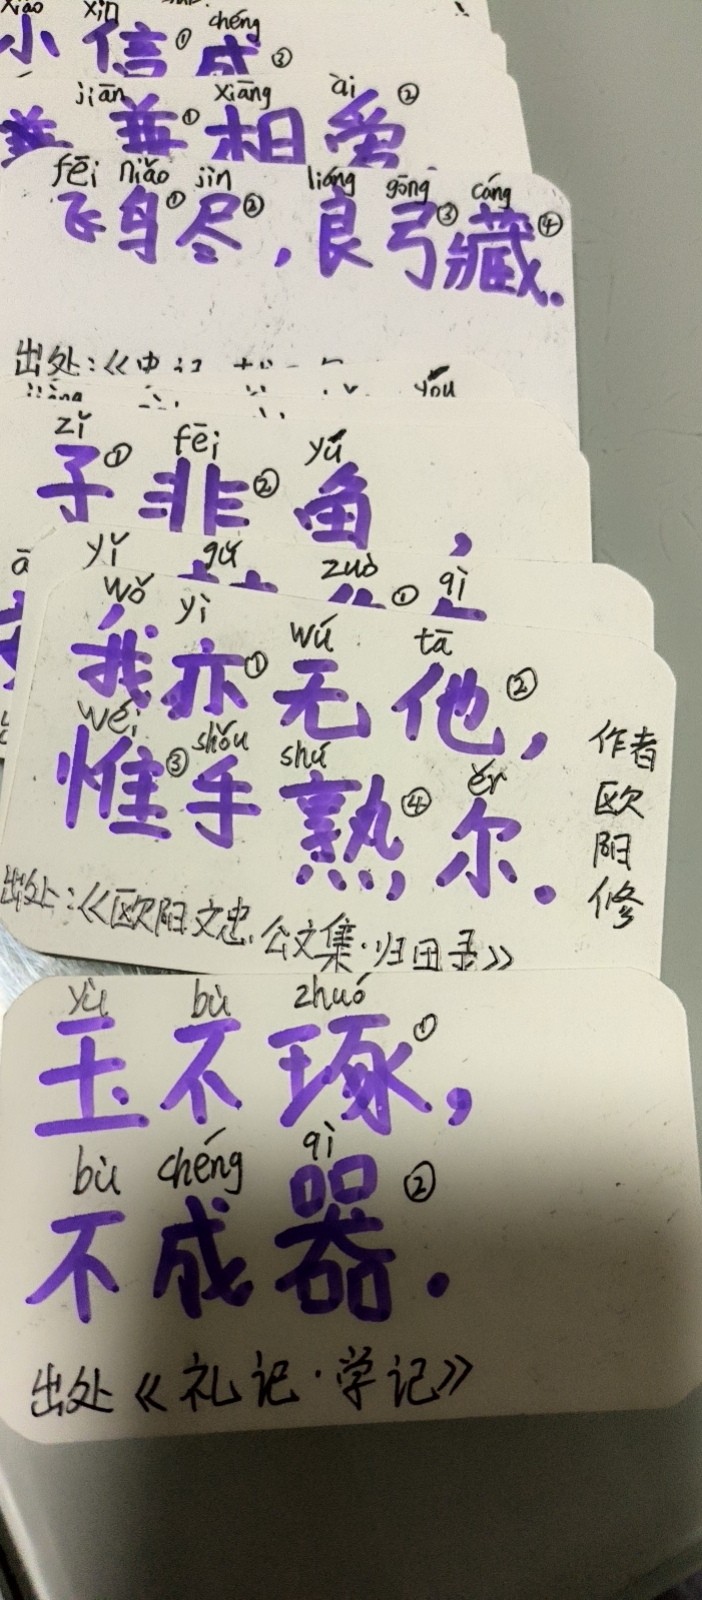 xiǎo xìn chéng
小信①成②
jiān xiāng ài
兼兼①相爱②
fēi niǎo jìn liáng gōng cáng
飞鸟①尽②,良弓③藏④.
出处:《史记
yǒu
zǐ fēi yú
子①非②鱼,
yǐ gǔ zuò qì
①
wǒ yì wú tā
我亦①无他②,
wéi shǒu shú ěr
惟③手熟④尔.
作者欧阳修
出处:《欧阳文忠公文集·归田录》
yù bù zhuó
玉不琢①,
bù chéng qì
不成器②.
出处《礼记·学记》